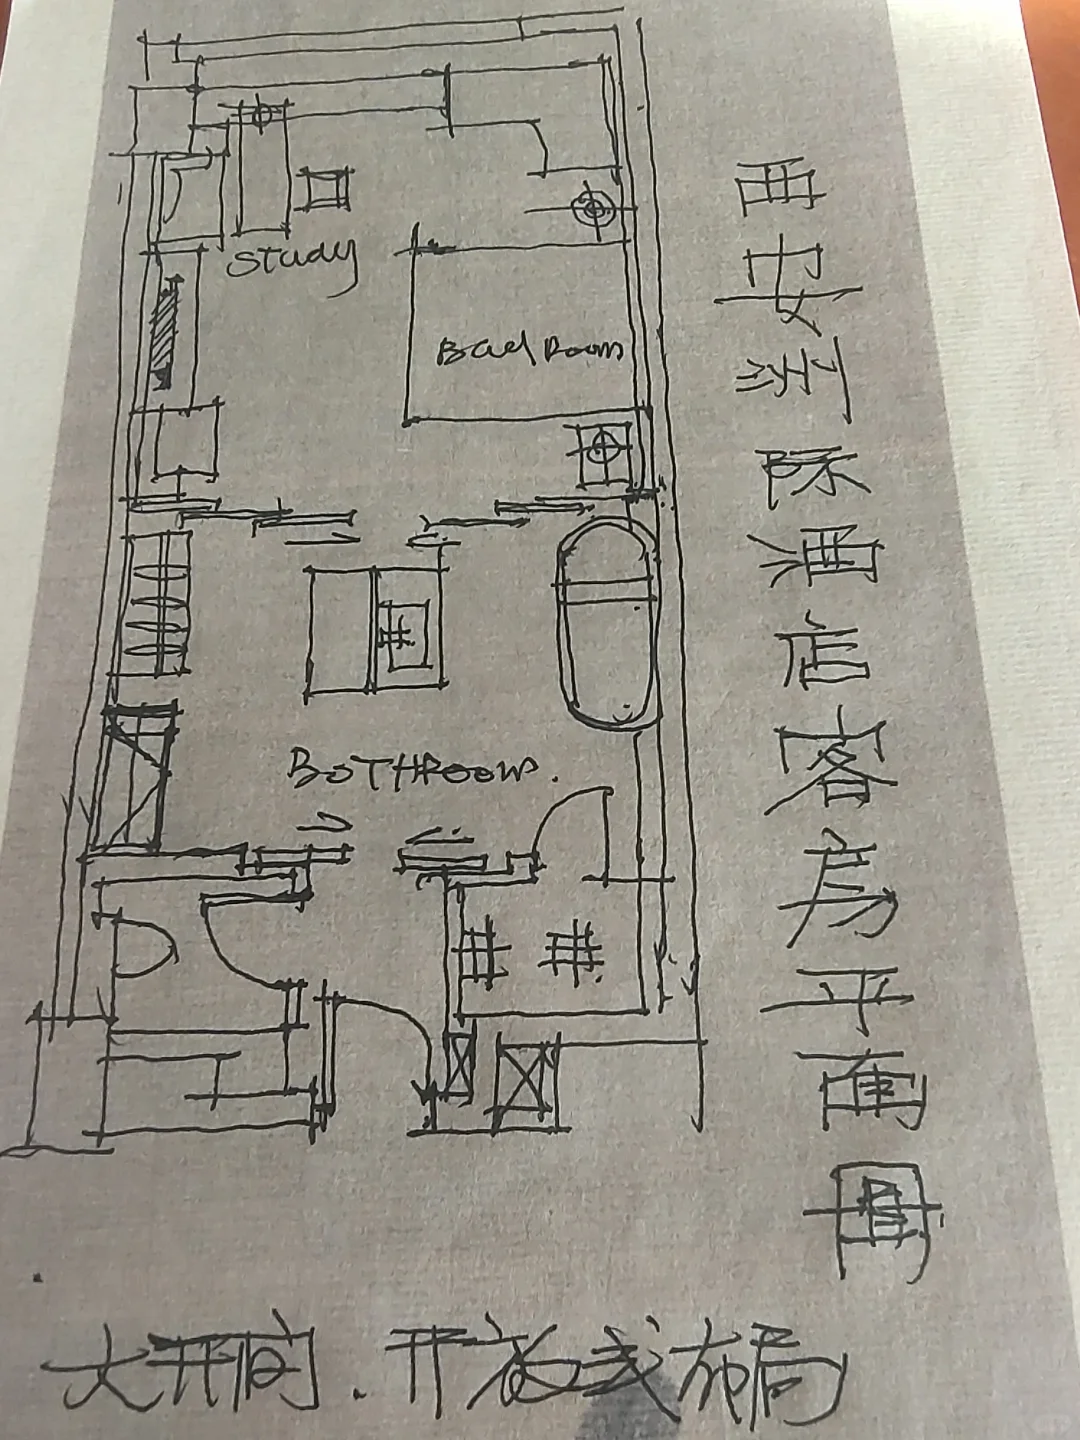 Study
Bad Room
BOTHROOM.
西安洲际酒店客房平面图
大开间.开放式布局